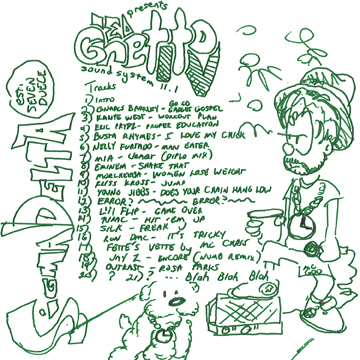 presents
Led
Ghetto
sound system 11.1
Tracks
1 Intro
2 Gnarls Barkley - Go Go Gadget Gospel
3 Kanye West - Workout Plan
4 Eric Prydz - Proper Education
5 Busta Rhymes - I Love My Chick
6 Nelly Furtado - Man Eater
7 MIA - (Diplo Mix)
8 Eminem - Shake That
9 Morcheeba - Women Lose Weight
10 Kriss Kross - Jump
11 Young Jibbs - Does Your Chain Hang Low
12 Error? Error?
13 Lil Flip - Game Over
14 2pac - Hit 'Em Up
15 Silk - Freak
16 Run DMC - It's Tricky
17 Fette's Vette by MC Chris
18 Jay Z - Encore (Numb Remix)
19 Outkast - Rosa Parks
20 ? 21? - Blah Blah Blah
est.
Seven
Deuce
Delta